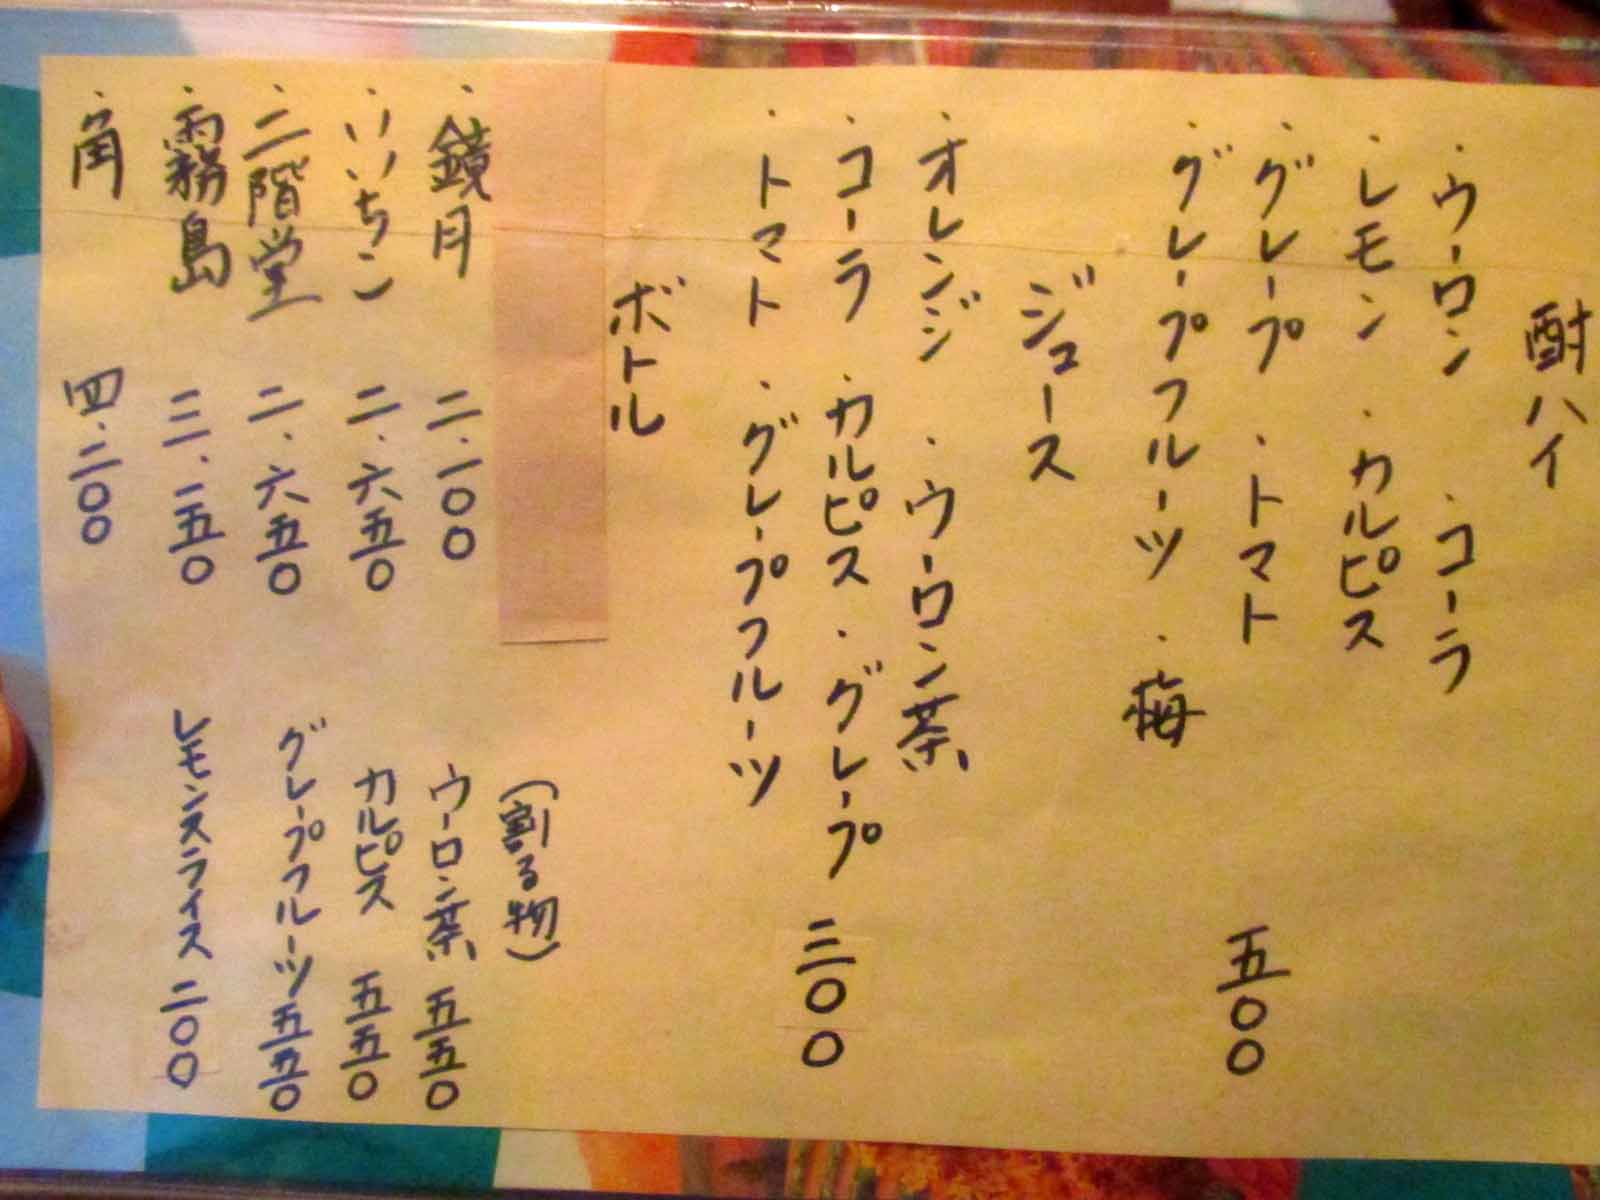 酎ハイ
・ウーロン ・コーラ
・レモン ・カルピス
・グレープ ・トマト
・グレープフルーツ ・梅
五〇〇
ジュース
・オレンジ ・ウーロン茶
・コーラ ・カルピス ・グレープ
・トマト ・グレープフルーツ
三〇〇
ボトル
・鏡月 二.一〇〇
・いいちこ 二.六五〇
・二階堂 二.六五〇
・霧島 三.一五〇
・角 四.二〇〇
(割る物)
ウーロン茶 五五〇
カルピス 五五〇
グレープフルーツ 五五〇
レモンスライス 二〇〇